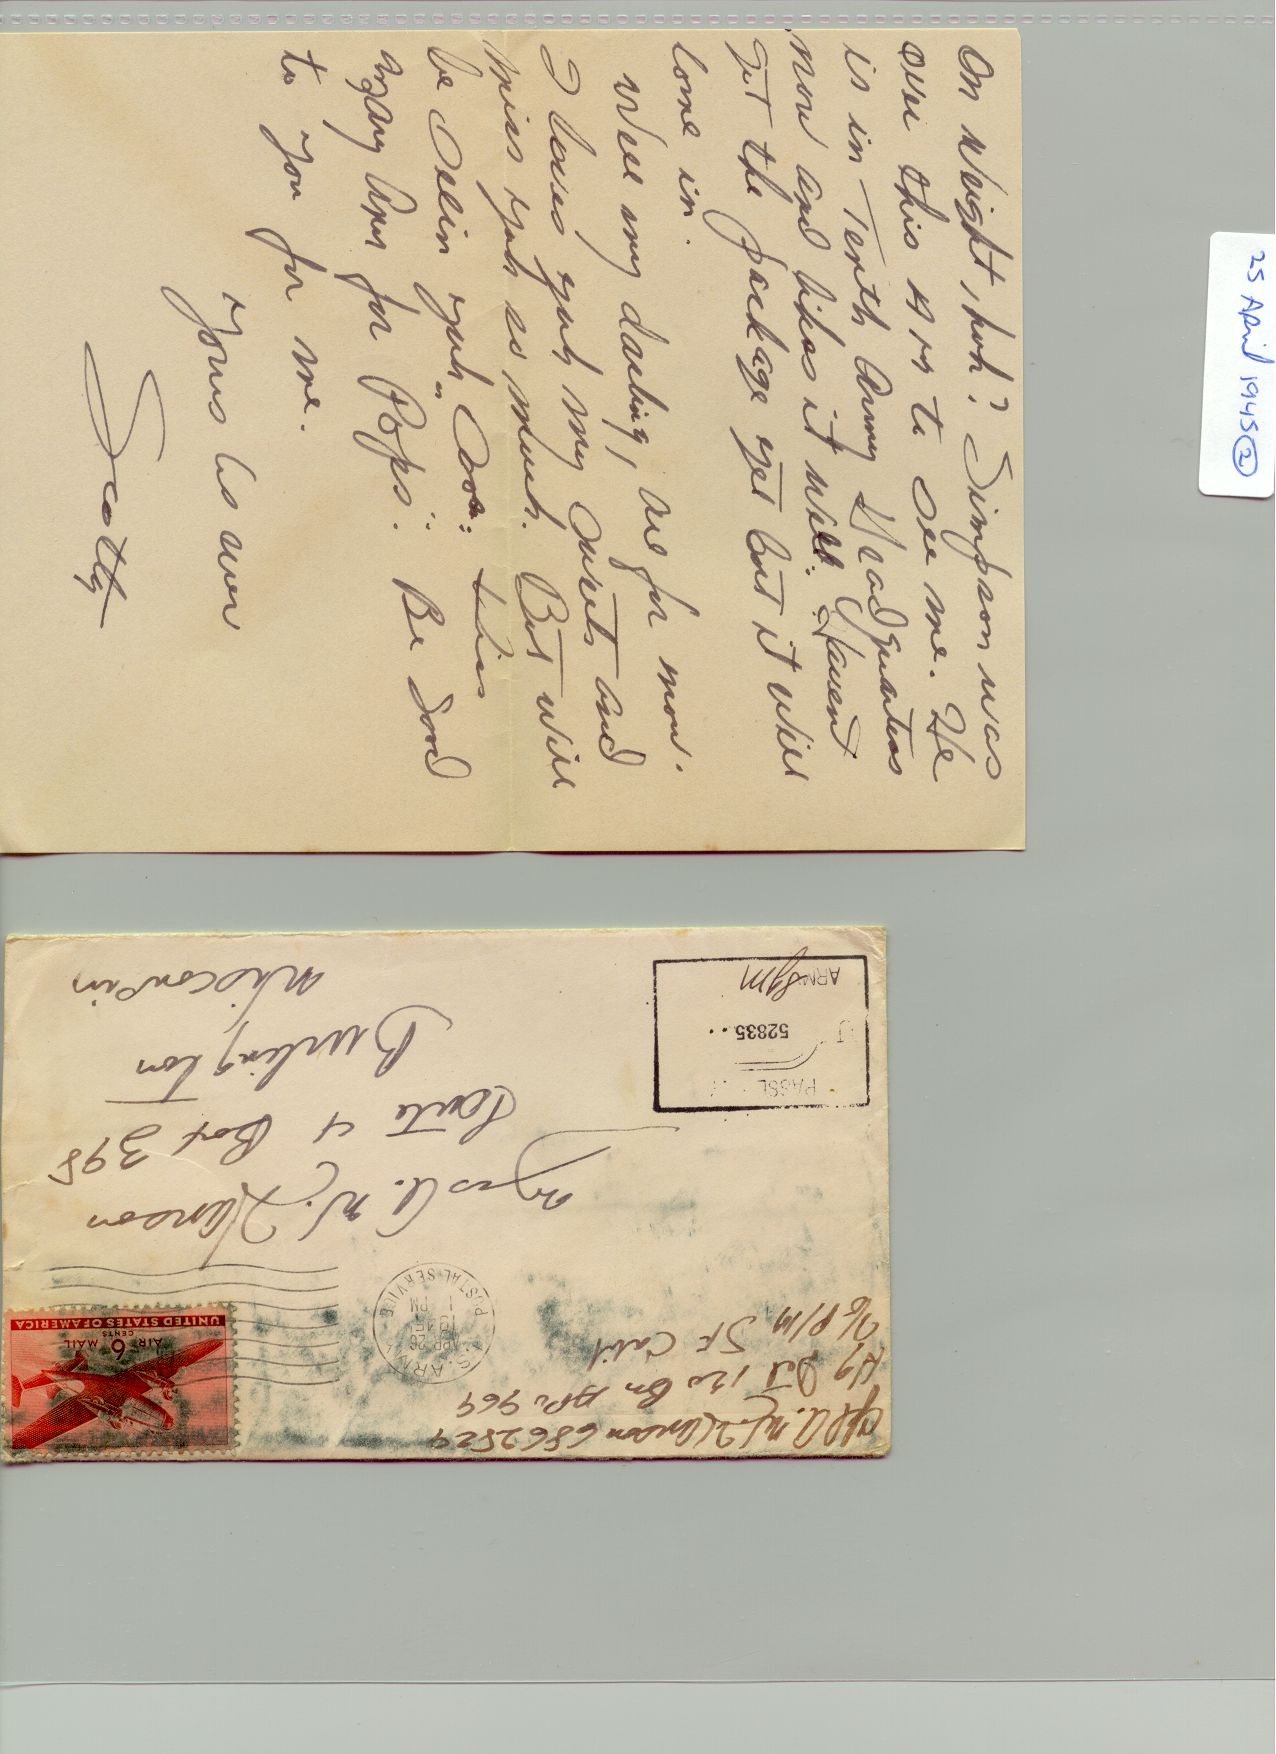 25 April 1945 2
on weight, huh? Simpson was
over this A M to see me. He
is in Tenth Army Headquarters
now and likes it well. Havent
got the package yet but it will
come in.
Well my darling, for now.
I loves yuh my sweets and
miss yuh so much. But will
be seein yuh soon.
for "Pops". Be Good
to you for me.
Yours as ever
Scotty
Cpl A. W. 6862524
Hq Det 120 Bn APO 969
c/o P/M SF Calif
U.S. ARMY
APR 26
1945
1 PM
POSTAL SERVICE
UNITED STATES OF AMERICA
AIR MAIL
6 CENTS
Mrs A. W.
Route 4 Box 398
Burlington
Wisconsin
PASSED
52835
ARMY